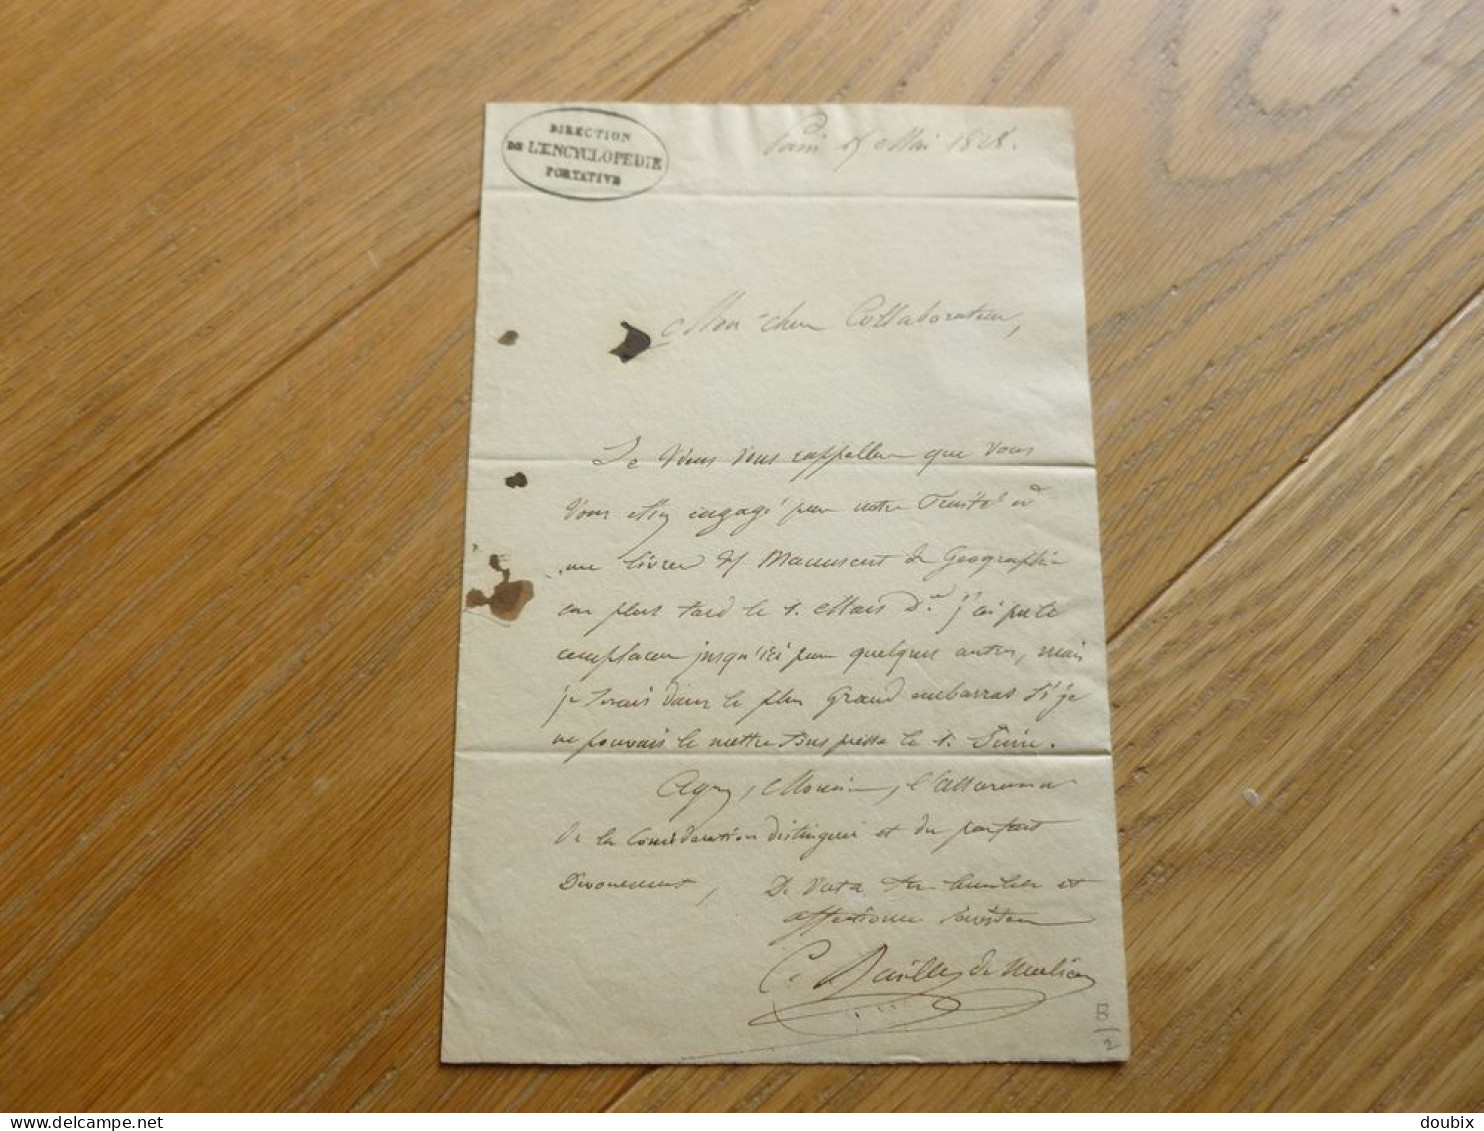 DIRECTION
DE L'ENCYCLOPEDIE
PORTATIVE
Paris 15 Mai 1828.
Mon cher Collaborateur,
Je viens vous rappeller que vous
vous etiez engagé par notre Traité à
me livrer le Manuscrit de Geographie
au plus tard le 1. Mars d.er j'ai pu le
remplacer jusqu'ici par quelques autres, mais
je serais dans le plus grand embarras si je
ne pouvais le mettre sous presse le 1. Juin.
Agréez, Monsieur, l'assurance
de la consideration distinguée et du parfait
Devouement,
De votre tres humble et
affectionné serviteur
C. Bailly de Merlieux
B
2
delcampe.net
doubix